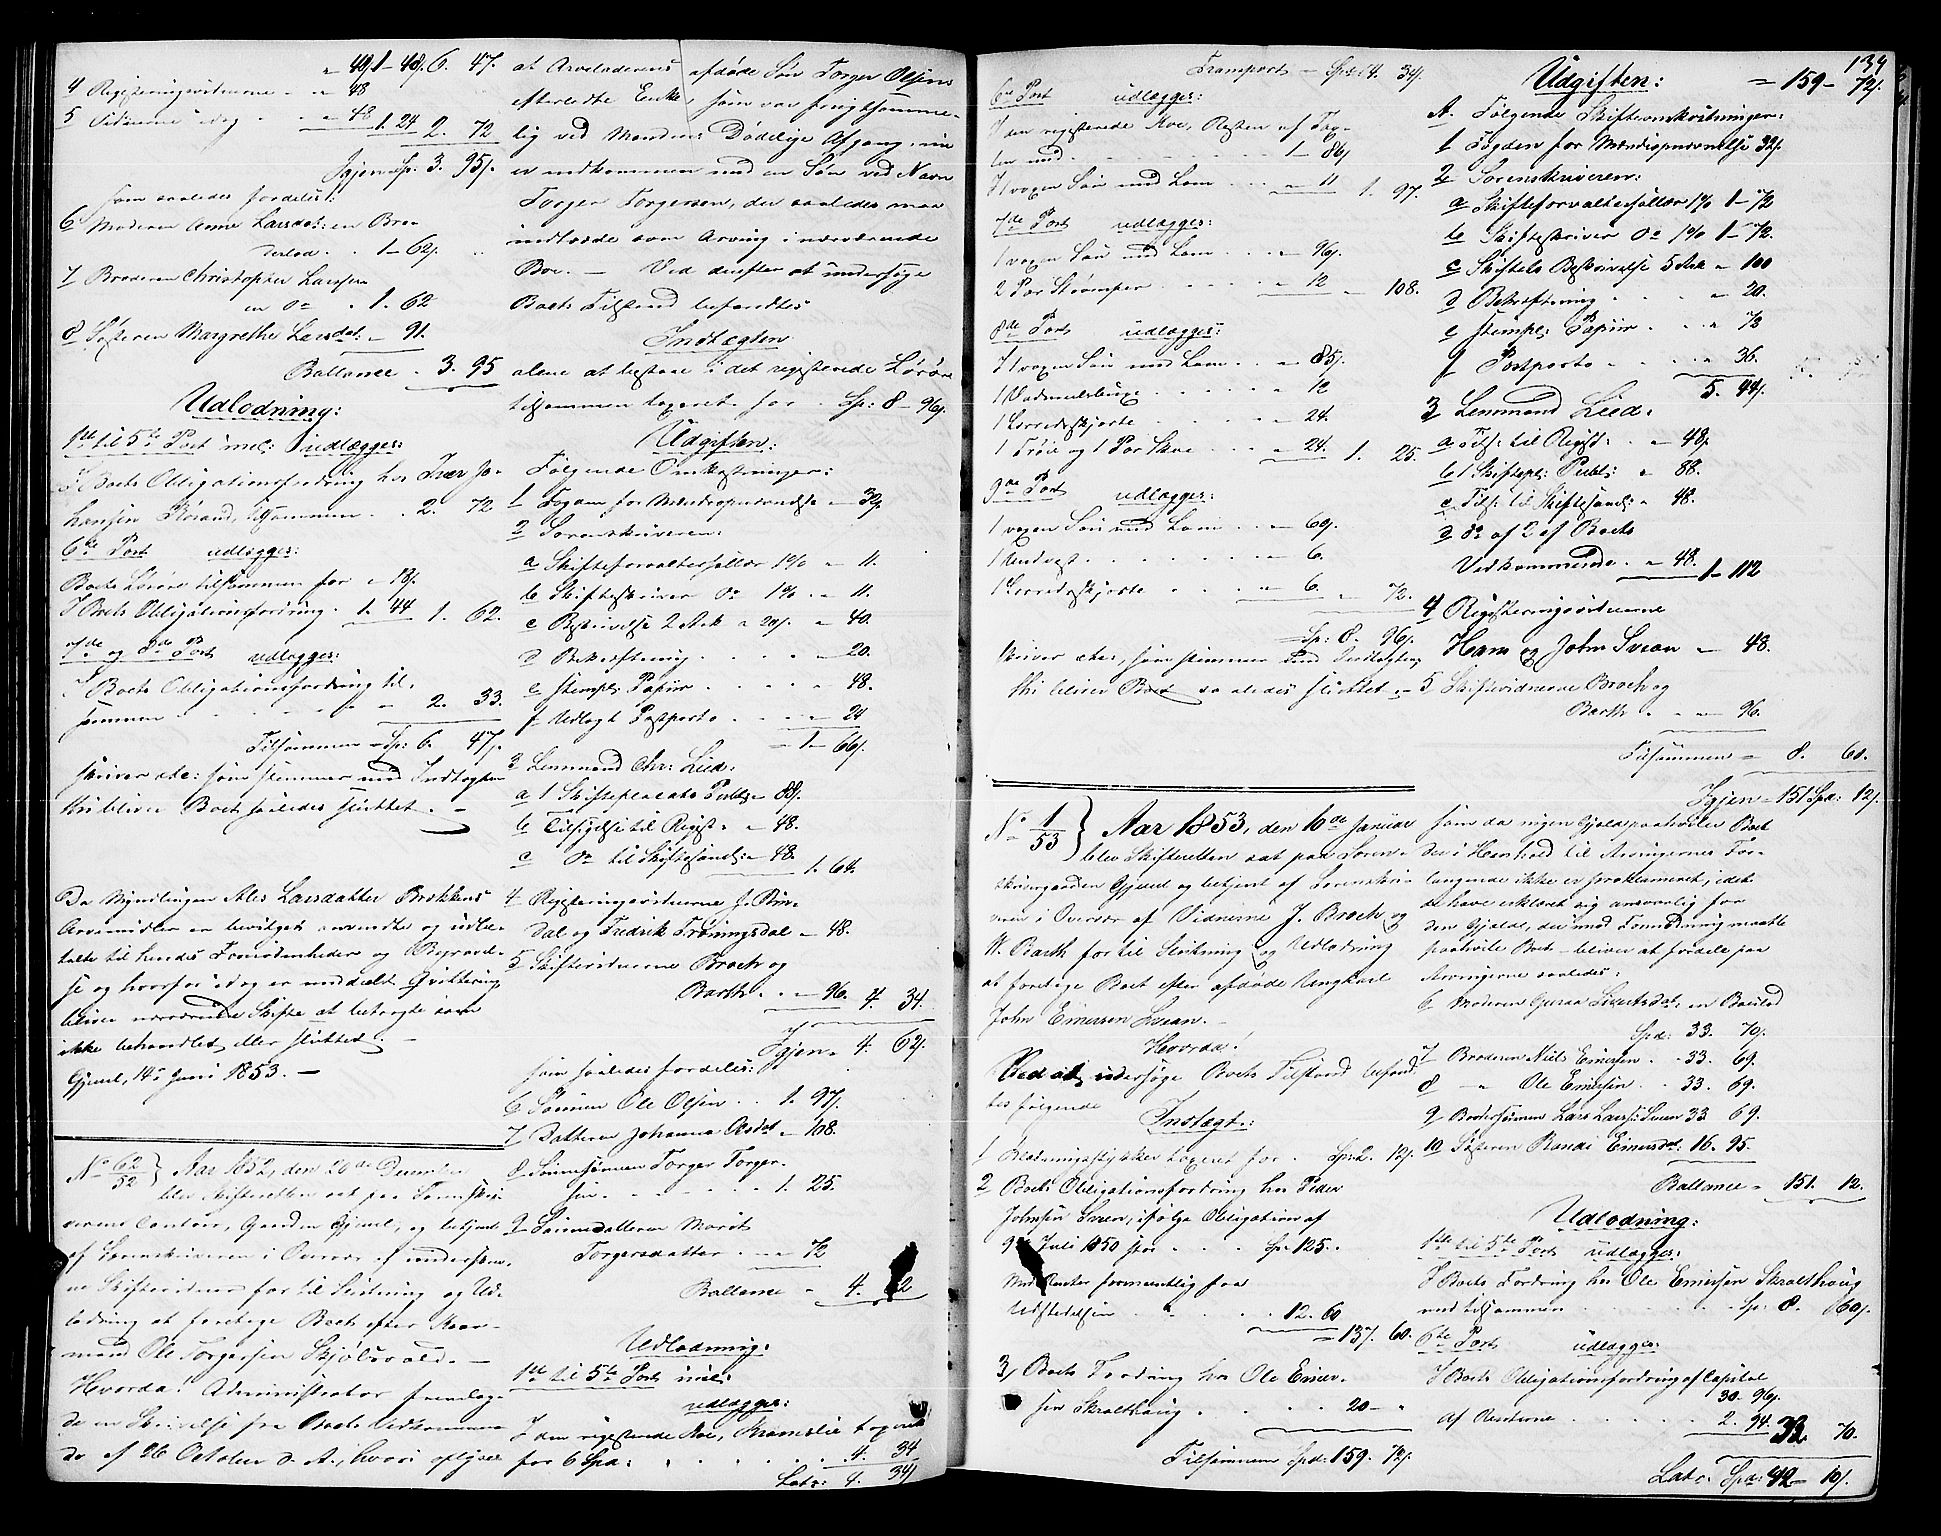 " 49. 1 - 48. 6. 47.
4 Registreringsvidnerne . " " 48
5 Vidnerne idag . . " 48 1. 24 2. 72
Igjen Sp. 3. 95/.
som saaledes fordeles:
6 Moderen Anne Larsdat: en Bro-
derlod . . 1 - 62/.
7 Broderen Christopher Larssen
en do " 1. 62
8 Søsteren Margrethe Larsdat: " 91.
Ballance . 3. 95
Udlodning:
1ste til 5te Post incl: udlægges:
I Boets Obligationsfordring hos Iver Jo-
hansen Storand, tilsammen . . 2. 72
6te Post udlægges:
Boets Løsøre tilsammen for " 18/.
I Boets Obligationsfordring . 1. 44 1. 62.
7de og 8de Post udlægges:
I Boets Obligationsfordring til-
sammen . . . . . 2. 33.
Tilsammen Sp: 6. 47/.
skriver etc: som stemmer med Indtægten
thi bliver Boet saaledes sluttet. —
Da Myndlingen Ales Larsdatter Brekkens
Arvemidler er bevilget anvendte og udbe-
talte til hendes Fornødenheder og Begravel-
se og hvorfor idag er meddeelt Qvittering
bliver nærværende Skifte at betragte som
ikke behandlet eller sluttet. —
Gjerul, 14de Juni 1853. —
No 62/52 } Aar 1852, den 20de December
blev Skifteretten sat paa Sorenskri-
verens Contoir, Gaarden Gjerul, og betjent
af Sorenskriveren i Overvær af undertegne-
de Skiftevidner for til Slutning og Ud-
lodning at foretage Boet efter Kaar-
mand Ole Torgersen Skjølsvold. —
Hvorda! Administrator fremlag-
de en Skrivelse fra Boets Vedkommen-
de af 26 October d. A., hvori oplyses
at Arveladerens afdøde Søn Torger Olsens
efterladte Enke, som var frugtsomme-
lig ved Mandens Dødelige Afgang, nu
er nedkommen med en Søn ved Navn
Torger Torgersen, der saaledes maa
indtræde som Arving i nærværende
Boe. — Ved derefter at undersøge
Boets Tilstand befandtes
Indtægten
alene at bestaae i det registrerede Løsøre
tilsammen taxeret for . Sp: 8 - 96/.
Udgiften:
Følgende Omkostninger:
1 Fogden for Mændsopnævnelse " 32/.
2 Sorenskriveren:
a Skifteforvaltersallær 1% " 11.
b Skifteskriver do 1% " 11.
c Beskrivelse 2 Ark a 20/. " 40.
d Bekræftning . . . . " 20.
e stempl: Papiir . . . " 48.
f Udlagt Postporto . . . " 24
= 1 - 66/.
3 Lensmand Chr: Lied:
a 1 Skifteplacats Publ: " 88/.
b Tilsigelse til Regist: " " 48.
c do til Skiftesaml: " 48.
1. 64.
4 Registreringsvidnerne J. Bin-
dal og Fredrik Trøningsdal " 48.
5 Skiftevidnerne Broch og
Barth . . " 96. 4. 34.
Igjen " 4. 62/.
som saaledes fordeles:
6 Sønnen Ole Olsen . . 1. 97/.
7 Datteren Johanna Olsdat " 108.
8 Sønnesønnen Torger Torger-
sen . . . . . . 1. 25.
9 Sønnedatteren Marit
Torgersdatter . . " 72
Ballance " 4. 62
Udlodning:
1ste til 5te Post incl:
udlægges:
I den registrerede Koe, Bramslie taxeret
for 6 Spd: . . . . . 4. 34
Lats: 4. 34/.
139
Transport " Spd: 4. 34/.
6te Post udlægges:
I den registrerede Koe, Resten af Tax-
ten med . . . . . . 1 - 86/.
I 1 voxen Sau med Lam . . " 11 1. 97.
7de Post udlægges:
1 voxen Sau med Lam . . " 96/.
2 Par Strømper . . . . " 12 " 108.
8de Post udlægges:
I 1 voxen Sau med Lam . . " 85/.
1 Vadmelsbuxe . . . . " 12
1 Lærredsskjorte . . . . " 24.
1 Trøie og 1 Par Skoe . . " 24. 1. 25.
9de Post udlægges:
1 voxen Sau med Lam . . " 60/.
1 Undvest . . . . . " 6.
1 Lærredsskjorte . . . " 6. " 72.
Sp: 8. 96/.
skriver etc., som stemmer med Indtægten,
thi bliver Boet saaledes sluttet. —
No 1/53 } Aar 1853, den 10de Januar
blev Skifteretten sat paa Soren-
skrivergaarden Gjerul og betjent af Sorenskri-
veren i Overvær af Vidnerne J. Broch og
W. Barth for til Slutning og Udlodning
at foretage Boet efter afdøde Ungkarl
John Einersen Svean. —
Hvorda!
Ved at undersøge Boets Tilstand befand-
tes følgende
Indtægt:
1 taxeret for . Spd: 2. 12/.
2 Boets Obligationsfordring hos Peder
Johnsen Svean, ifølge Obligation af
9de Juli 1850 stor . . . Sp: 125. "
Med Renter formentlig fra
Udstedelsen . . . . 12. 60
= 137. 60.
3, Boets Fordring hos Ole Einer-
sen Skralthaug . . . . 20 - "
Tilsammen Spd: 159. 72/.
Udgiften: = 159 - 72/.
A. Følgende Skifteomkostninger:
1 Fogden for Mændsopnævnelse 32/.
2 Sorenskriveren:
a Skifteforvaltersallær 1% 1 - 72
b Skifteskriver do 1% 1 - 72.
c Skiftets Beskrivelse 5 Ark " 100
d Bekræftning . . . " 20.
e stempl: Papiir . . . " 72
f Postporto . . . . " 36.
5. 44/.
3 Lensmand Lied:
a Tils: til Regist: . . " 48/.
b 1 Skiftepl: Publ: " 88.
c Tils: til Skiftesaml: " 48.
d do af 2 af Boets
Vedkommende . " 48. 1 - 112
4 Registreringsvidnerne
Hans og John Svean " 48.
5 Skiftevidnerne Broch og
Barth . . " 96.
Tilsammen = 8. 60.
Igjen = 151 Spd: 12/.
som da ingen Gjæld paahviler Boet
der i Henhold til Arvingernes For-
langende ikke er proklameret, idet
de have erklæret sig ansvarlig for
den Gjæld, der imod Formodning maatte
paahvile Boet — bliver at fordele paa
Arvingerne saaledes:
6 Moderen Guraa Sivertsdat: en Boeslod
Spd: 33. 70/.
7 Broderen Niels Einersen . " 33. 69.
8 — " Ole Einersen . " 33. 69.
9 Brodersønnen Lars Larss: Svean 33 69.
10 Søsteren Randi Einersdat: 16. 95.
Ballance " 151. 12.
Udlodning:
1ste til 5te Post udlægges:
I Boets Fordring hos Ole Einersen Skralthaug
med tilsammen . . . . . Sp: 8. 60/.
6te Post udlægges:
I Boets Obligationsfordring af Capital
30. 96/.
af Renterne . . . . 2. 94. 33. 70.
Lats. Spd: 42 - 10/.